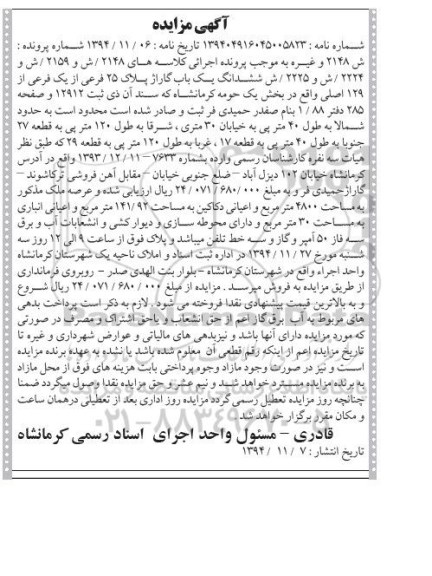 آگهی مزایده
شـماره نامه : ۱۳۹۴۰۴۹۱۶۰۴۵۰۰۵۸۲۳ تاریخ نامه : ۰۶ / ۱۱ / ۱۳۹۴ شـماره پرونده :
ش ۲۱۴۸ و غیـره به موجب پرونده اجرائی کلاسه هـای ۲۱۴۸ / ش و ۲۱۵۹ / ش و
۲۲۲۴ / ش و ۲۲۲۵ / ش ششـدانگ یـک باب گاراژ پـلاک ۲۵ فرعی از یک فرعی از
۱۲۹ اصلی واقع در بخش یک حومه کرمانشـاه که سـند آن ذی ثبت ۱۲۹۱۲ و صفحه
۲۸۵ دفتر ۸۸ / ۱ بنام صفدر حمیدی فر ثبت و صادر شده است محدود است به حدود
شـمالا به طول ۴۰ متر پی به خیابان ۳۰ متری ، شـرقا به طول ۱۲۰ متر پی به قطعه ۲۷
جنوبا به طول ۴۰ متر پی به قطعه ۱۷ ، غربا به طول ۱۲۰ متر پی به قطعه ۲۹ که طبق نظر
هیات سـه نفره کارشناسان رسمی وارده بشماره ۷۶۳۳ – ۱۱ / ۱۲ / ۱۳۹۳ واقع در آدرس
کرمانشاه خیابان ۱۰۲ دیزل آباد – ضلع جنوبی خیابان – مقابل آهن فروشی ترکاشوند –
گاراژ حمیدی فر و به مبلغ ۰۰۰ / ۶۸۰ / ۰۷۱ / ۲۴ ریال ارزیابی شده و عرصه ملک مذکور
به مساحت ۴۸۰۰ متر مربع و اعیانی دکاکین به مساحت ۱۴۱/۹۲ متر مربع و اعیانی انباری
به مساحت ۳۰ متر مربع و دارای محوطه سازی و دیوار کشی و انشعابات آب و برق
سـه فاز ۵۰ آمپر و گاز و سـه خط تلفن میباشد و پلاک فوق از ساعت ۹ الی ۱۲ روز سه
شـنبه مورخ ۲۷ / ۱۱ / ۱۳۹۴ در اداره ثبت اسناد و املاک ناحیه یک شهرستان کرمانشاه
واحد اجراء واقع در شهرستان کرمانشاه – بلوار بنت الهدی صدر – روبروی فرمانداری
از طریق مزایده به فروش میرسـد . مزایده از مبلغ ۰۰۰ / ۶۸۰ / ۰۷۱ / ۲۴ ریال شـروع
و به بالاترین قیمت پیشنهادی نقدا فروخته می شود . لازم به ذکر است پرداخت بدهی
های مربوط به آب برق گاز اعم از حق انشعاب و یا حق اشتراک و مصرف در صورتی
که مورد مزایده دارای آنها باشد و نیز بدهی های مالیاتی و عوارض شهرداری و غیره تا
تاریخ مزایده اعم از اینکه رقم قطعی آن معلوم شده باشد یا نشده به عهده برنده مزایده
است و نیز در صورت وجود مازاد وجوه پرداختی بابت هزینه های فوق از محل مازاد
به برنده مزایده مسترد خواهد شـد و نیم عشر و حق مزایده نقدا وصول میگردد ضمنا
چنانچه روز مزایده تعطیل رسمی گردد مزایده روز اداری بعد از تعطیلی درهمان ساعت
و مکان مقرر برگزار خواهد شد
قادری – مسئول واحد اجرای اسناد رسمی کرمانشاه
تاریخ انتشار : ۷ / ۱۱ / ۱۳۹۴